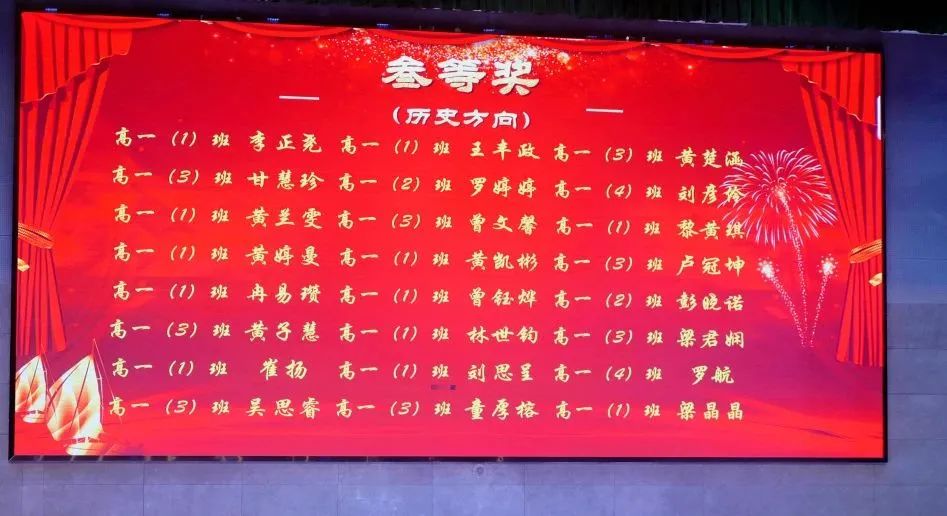 叁等奖
(历史方向)
高一 (1) 班 李正尧 高一 (1) 班 王丰政 高一 (3) 班 黄楚涵
高一 (3) 班 甘慧珍 高一 (2) 班 罗婷婷 高一 (4) 班 刘彦伶
高一 (1) 班 黄兰雯 高一 (3) 班 曾文馨 高一 (1) 班 黎黄琪
高一 (1) 班 黄婷曼 高一 (1) 班 黄凯彬 高一 (3) 班 卢冠坤
高一 (1) 班 冉易瓒 高一 (1) 班 曾钰烨 高一 (2) 班 彭晚诺
高一 (3) 班 黄子慧 高一 (1) 班 林世钧 高一 (3) 班 梁君娴
高一 (1) 班 崔扬 高一 (1) 班 刘思呈 高一 (4) 班 罗航
高一 (3) 班 吴思睿 高一 (3) 班 童厚榕 高一 (1) 班 梁晶晶